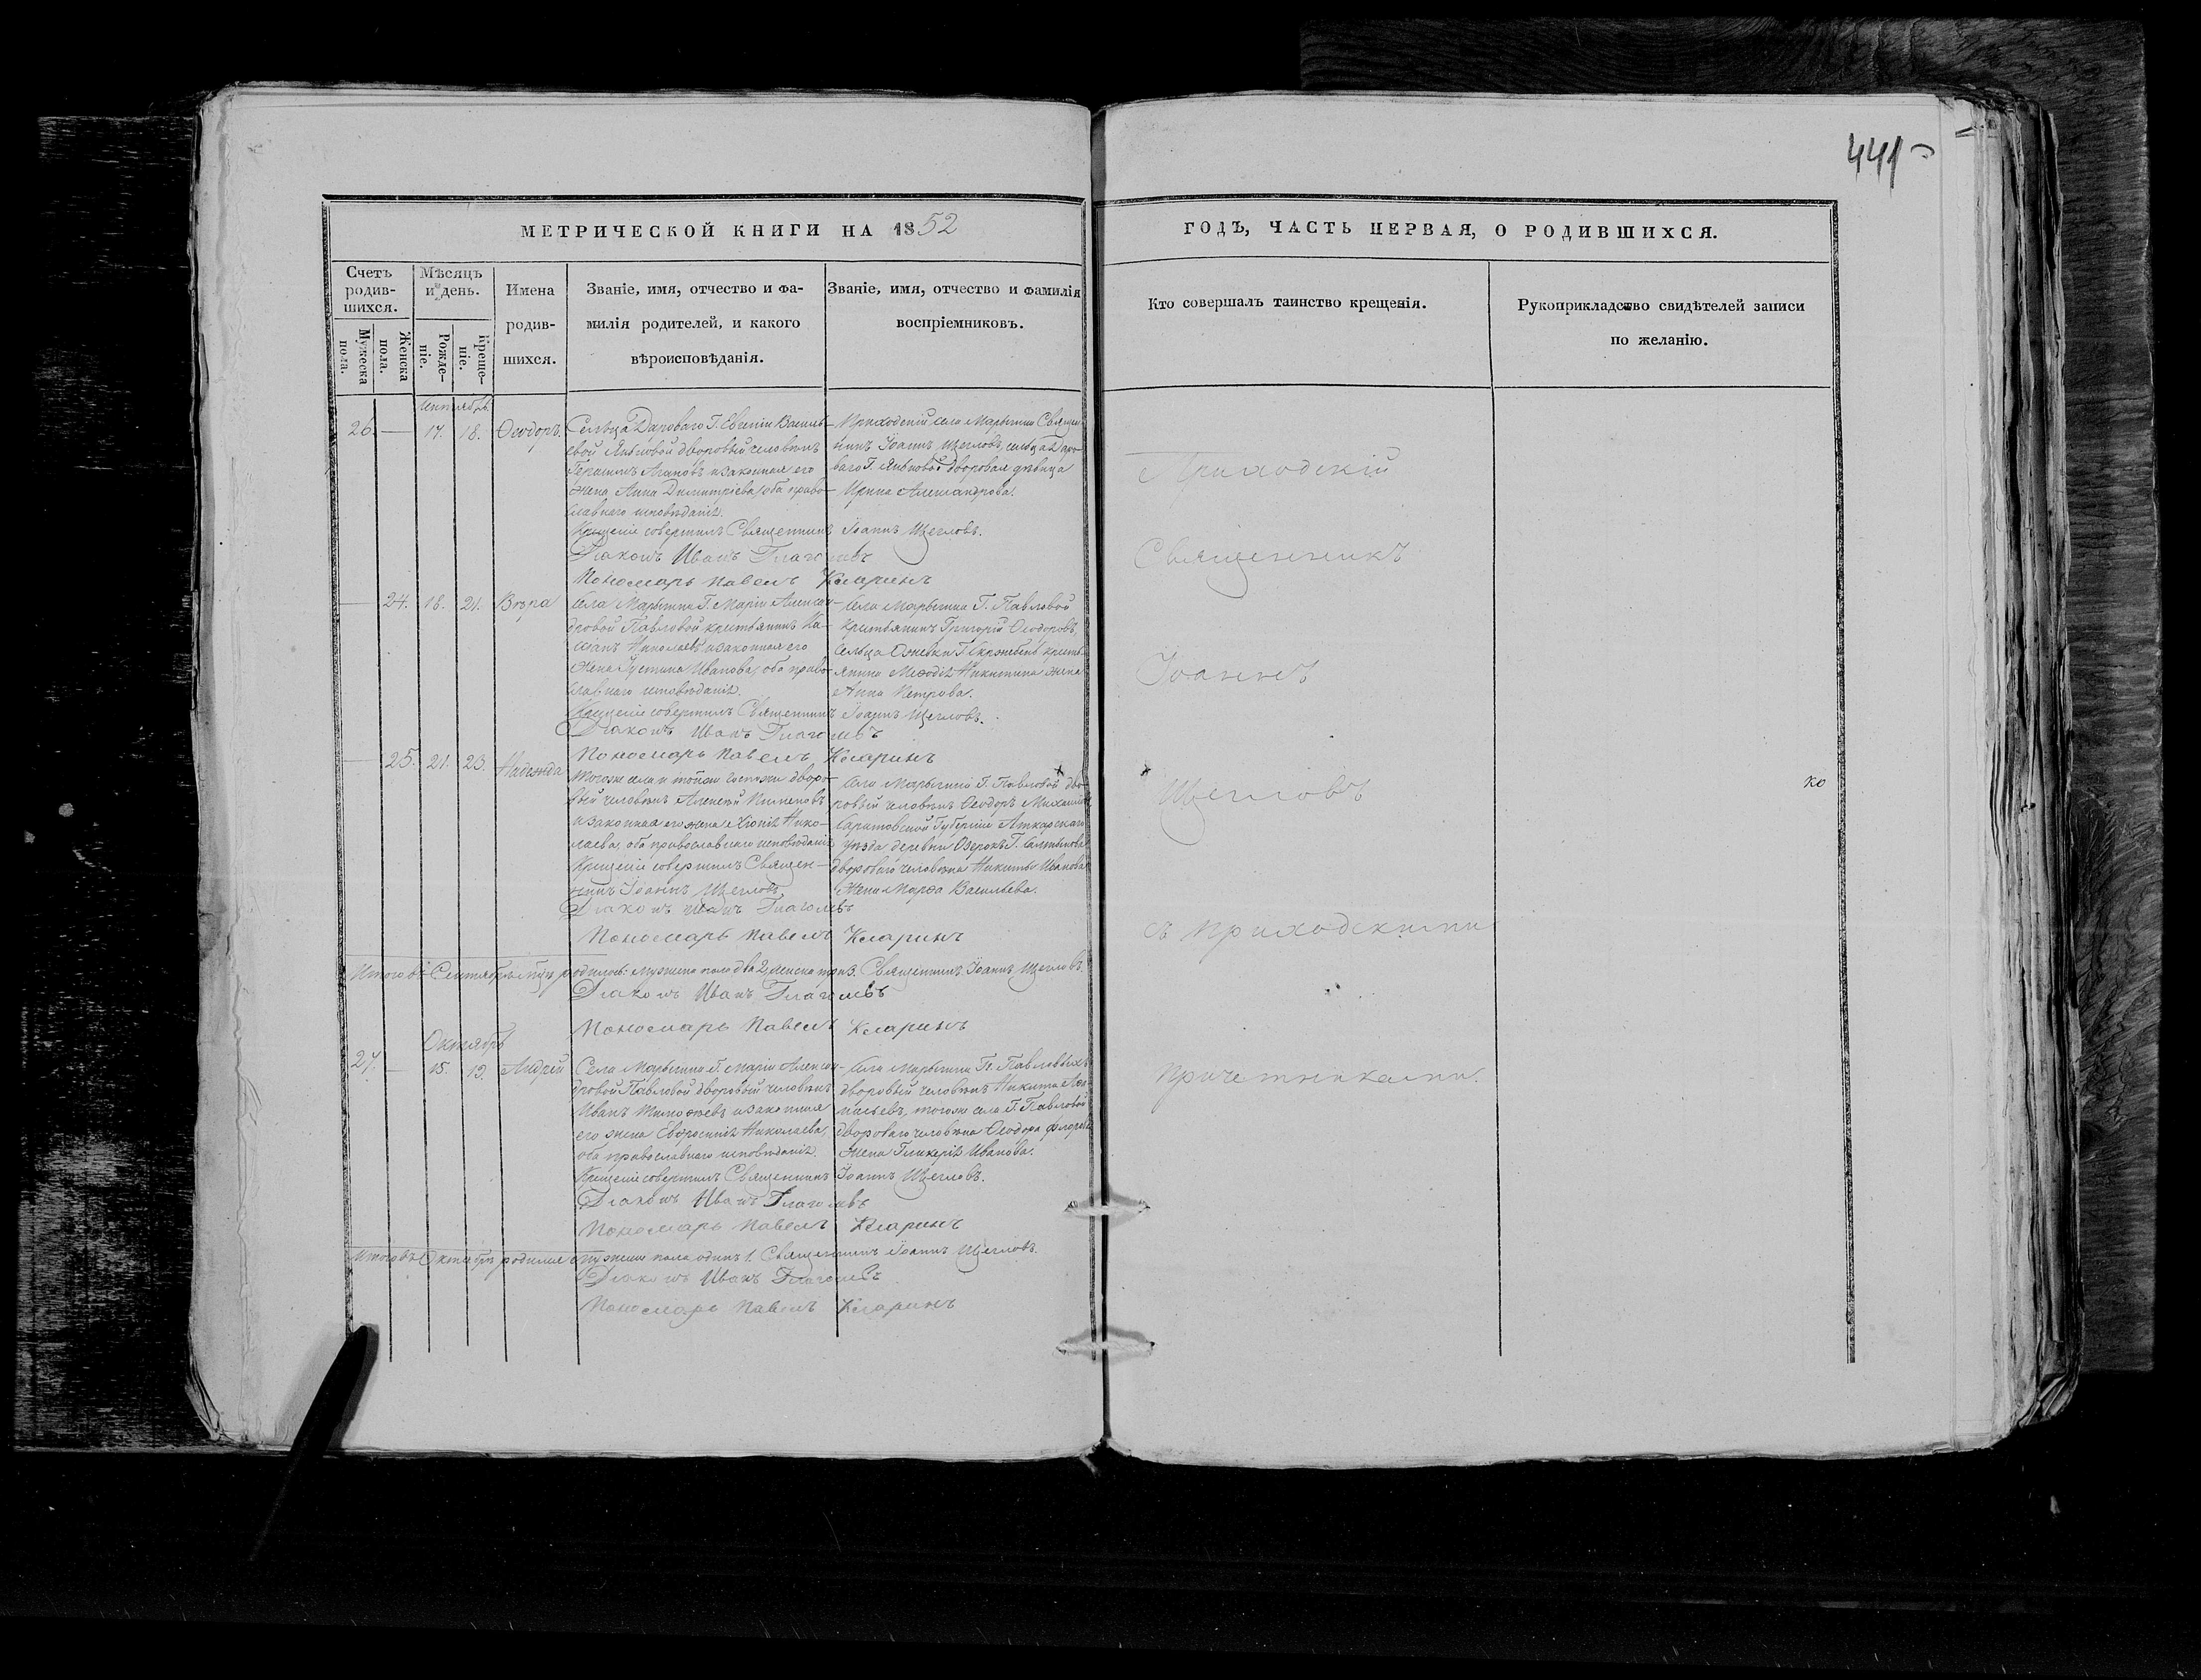 441
МЕТРИЧЕСКОЙ КНИГИ НА 1852
ГОДЪ, ЧАСТЬ ПЕРВАЯ, О РОДИВШИХСЯ.
Счетъ родив-шихся.
Мужеска пола.
Женска пола.
Мѣсяцъ и день.
Рожде-ніе.
Креще-ніе.
Имена родив-шихся.
Званіе, имя, отчество и фа-
милія родителей, и какого
вѣроисповѣданія.
Званіе, имя, отчество и фамилія
воспріемниковъ.
Кто совершалъ таинство крещенія.
Рукоприкладство свидѣтелей записи
по желанію.
Сентябрь
26. — 17. 18. Ѳеодоръ.
Сельца Дароваго Г. Евгеніи Василь-
евой дворовый человѣкъ
Герасимъ Агаповъ и законная его
жена Анна Димитріева, оба право-
славнаго исповѣданія.
Приходскій села Марыгина Священ-
никъ Іоаннъ Щегловъ, сельца Даро-
ваго Г. дворовая дѣвица
Ирина Александрова.
Крещеніе совершилъ Священникъ Іоаннъ Щегловъ.
Діаконъ Иванъ Глаголевъ
Пономарь Павелъ Кларинъ
— 24. 18. 21. Вѣра
Села Марыгина Г. Маріи Алексан-
дровой Павловой крестьянинъ
Николаевъ и законная его
жена Устина Иванова, оба право-
славнаго исповѣданія.
Села Марыгина Г. Павловой
крестьянинъ Григорій Ѳеодоровъ,
Сельца крестья-
янина Меѳодія Никитина жена
Анна Петрова.
Крещеніе совершилъ Священникъ Іоаннъ Щегловъ.
Діаконъ Иванъ Глаголевъ
Пономарь Павелъ Кларинъ
— 25. 21. 23. Надежда
Тогоже села и тойже Госпожи дворо-
вый человѣкъ Алексѣй Пименовъ
и законная его жена Хіонія Нико-
лаева, оба православнаго исповѣданія
Крещеніе совершилъ Священ-
никъ Іоаннъ Щегловъ
Села Марыгина Г. Павловой дво-
ровый человѣкъ Ѳеодоръ Михайловъ
Саратовской Губерніи Аткарскаго
уѣзда, деревни Озерокъ Г.
двороваго человѣка Никиты Иванова
жена Марѳа Васильева.
Діаконъ Иванъ Глаголевъ
Пономарь Павелъ Кларинъ
Итого въ Сентябрѣ родилось: мужеска пола два 2, женска три 3. Священникъ Іоаннъ Щегловъ.
Діаконъ Иванъ Глаголевъ
Пономарь Павелъ Кларинъ
Октябрь
27. — 15. 19. Андрей
Села Марыгина Г. Маріи Алексан-
дровой Павловой дворовый человѣкъ
Иванъ Тимоѳеевъ и законная
его жена Евфросинія Николаева,
оба православнаго исповѣданія.
Села Марыгина Гг. Павловыхъ
дворовый человѣкъ Никита
тогоже села Г. Павловой
двороваго человѣка Ѳеодора
жена Гликерія Иванова.
Крещеніе совершилъ Священникъ Іоаннъ Щегловъ.
Діаконъ Иванъ Глаголевъ
Пономарь Павелъ Кларинъ
Итого въ Октябрѣ родился мужеска пола одинъ 1. Священникъ Іоаннъ Щегловъ.
Діаконъ Иванъ Глаголевъ
Пономарь Павелъ Кларинъ
Приходскій
Священникъ
Іоаннъ
Щегловъ
съ приходскими
причетниками.
ко